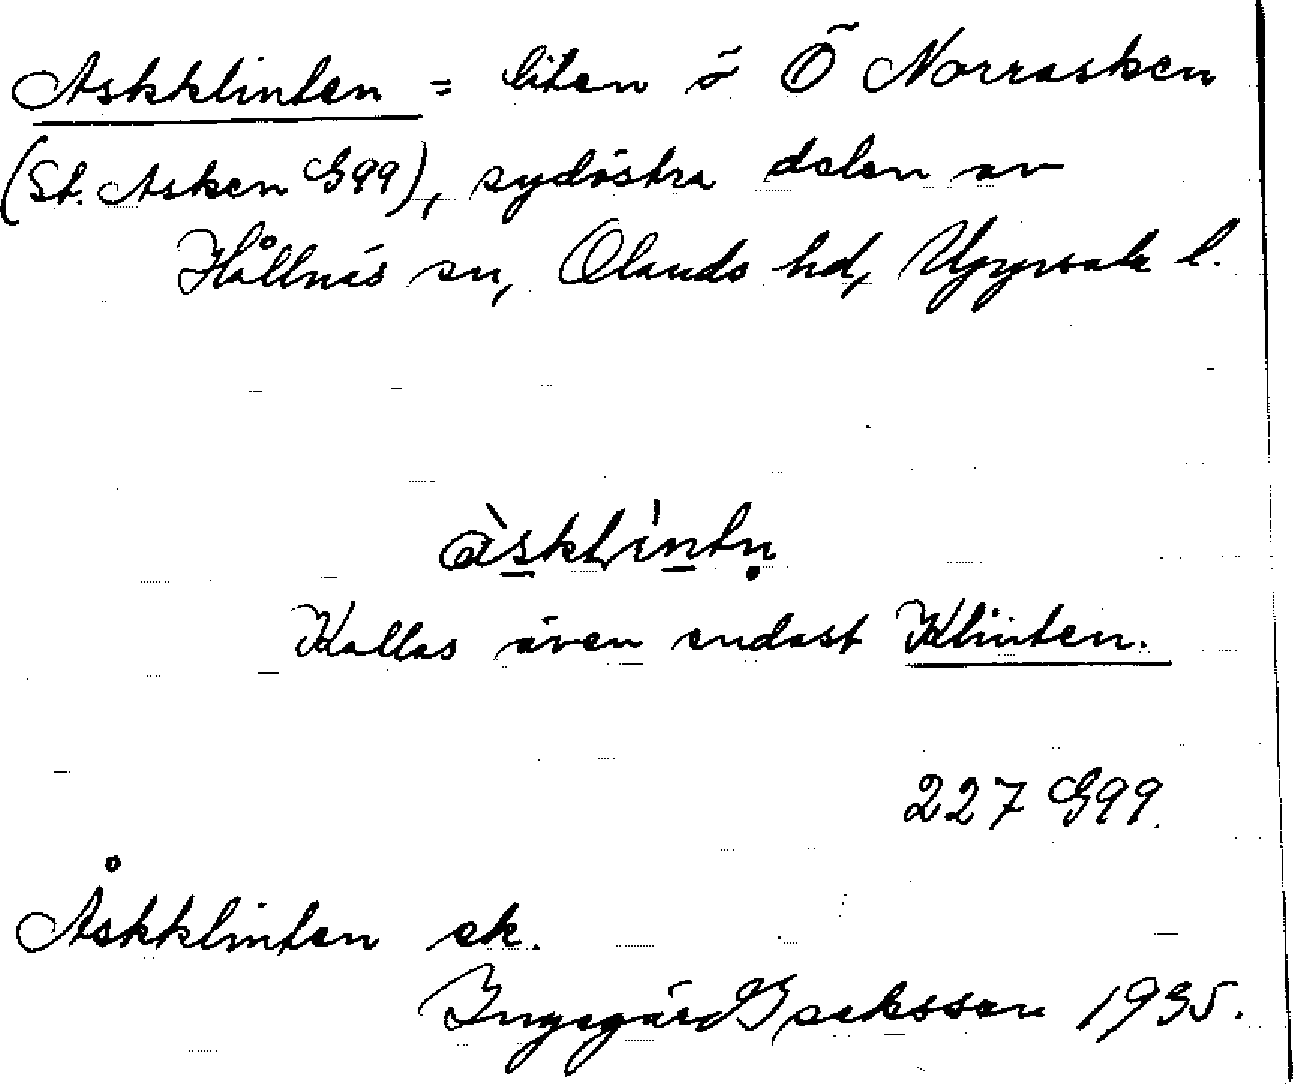 Askklinten = liten ö Ö Norrasken
(St. Asken G99), sydöstra delen av
Hållnäs sn, Olands hd, Uppsala l.
àsklíntṇ
Kallas även endast Klinten.
227 G99.
Åskklinten ek.
Ingegärd Isaksson 1935.